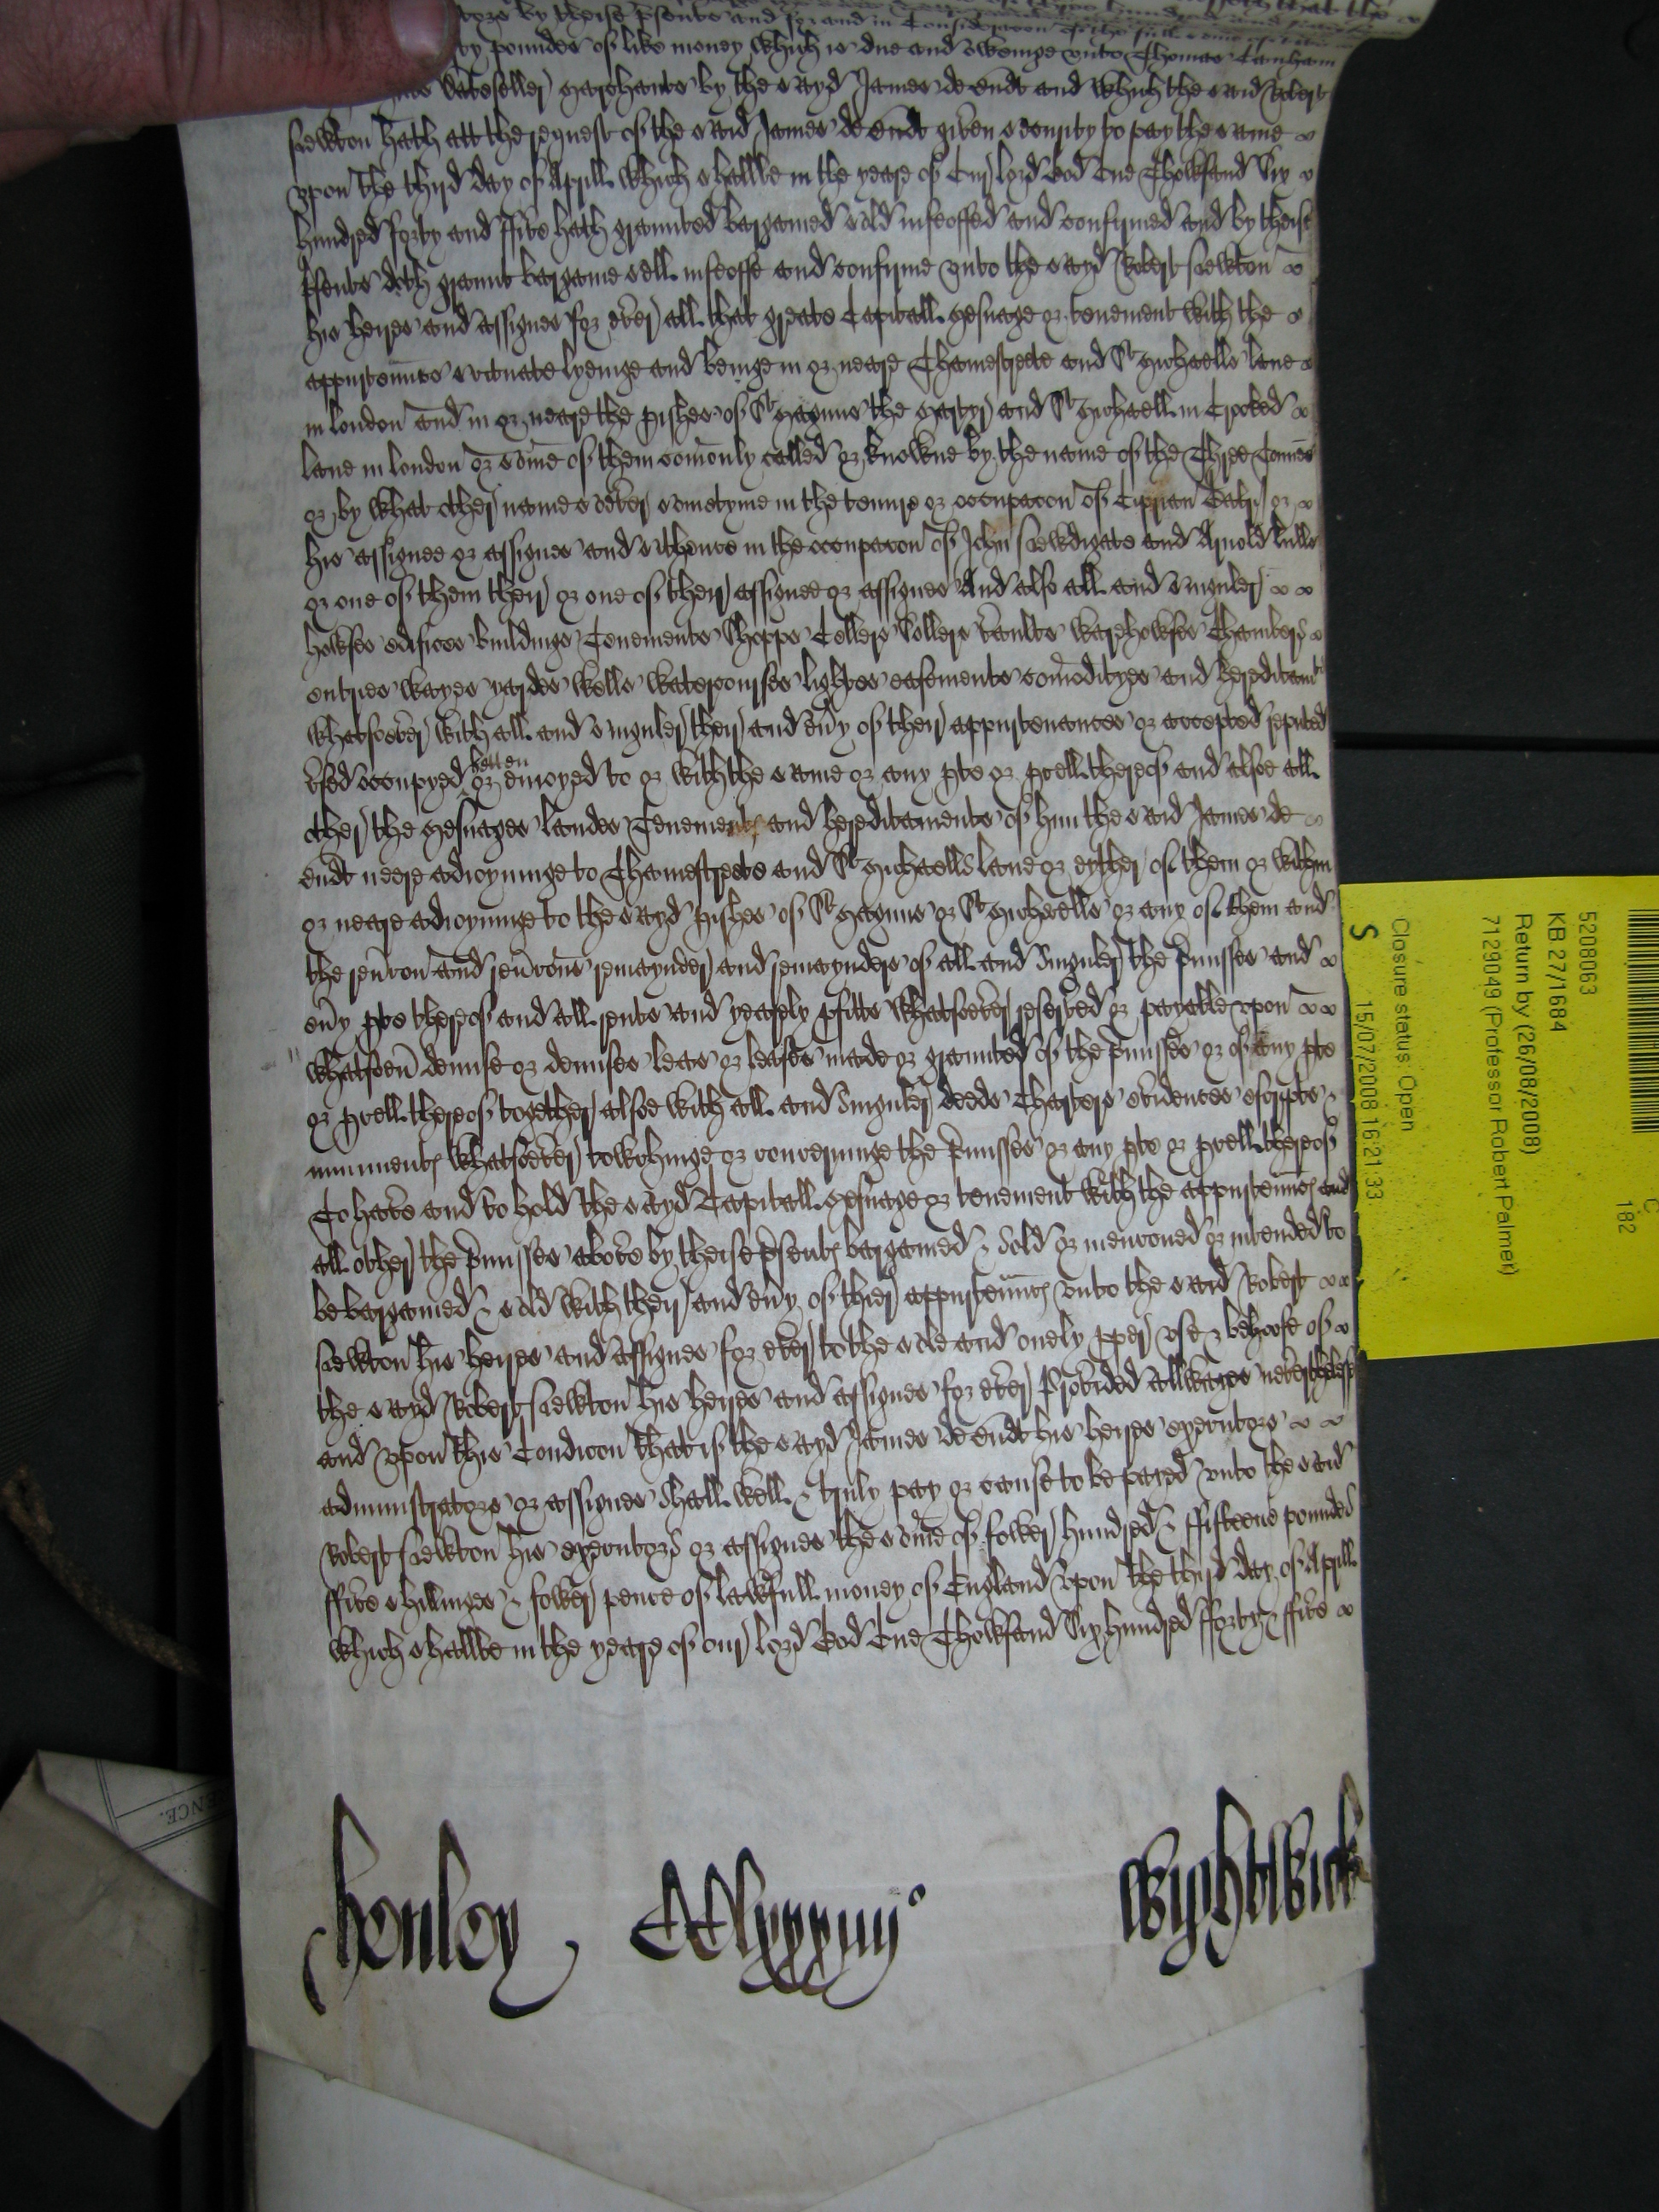 by theise psente and for and in Consideracon of the full
ty poundes of like money which is due and oweinge unto Thomas
marchante by the sayd James de Endt and which the said Robert
Newton hath att the request of the said James de Endt given security to pay the same
upon the third day of Aprill which shallbe in the yeare of our lord God One Thowsand Six
hundred forty and ffive hath graunted bargained sold infeoffed and confirmed and by theise
psente doth graunt bargaine sell infeoffe and confirme unto the sayd Robert Newton
his heires and assignes for ever all that greate Capitall Mesuage or tenement with the
appurtenncs scituate lyeinge and beinge in or neare Thamestreete and St Michaells lane
in london and in or neare the pishes of St Magnus the Martyr and St Michaell in Crooked
lane in london or some of them comonly called or knowne by the name of the Three
or by what other name soever sometyme in the tenure or occupacon of Ciprian or
his assignee or assignes and sithence in the occupacon of John Newdigate and Arnold lulls
or one of them their or one of their assignee or assignes And also all and singuler
howses edifices buildinge Tenemente Shopps Cellers Sollers vaults warehowses Chambers
entries wayes yardes wells watercourses lightes easemente comodityes and hereditamts
whatsoever with all and singuler their and evy of their appurtenances or accepted reputed
used occupyed letten or enioyed to or with the same or any pte or pcell thereof and alsoe all
other the Mesuages landes Tenements and hereditamente of him the said James de
Endt neere adioyninge to Thamestreete and St Michaells lane or eyther of them or within
or neare adioyninge to the sayd pishes of St Magnus or St Michaells or any of them and
the revcon and revcons remaynder and remaynders of all and Singuler the pmisses and
evy pte thereof and all rente and yearely pfitte whatsoever reserved or payable upon
whatsoev demise or demises lease or leases made or graunted of the pmisses or of any pte
or pcell thereof together alsoe with all and Singuler deeds Charters evidences escripte &
muniments whatsoever towchinge or concerninge the pmisses or any pte or pcell thereof
To have and to hold the sayd Capitall Mesuage or tenement with the appurtenncs and
all other the pmisses above by theise psents bargained & Sold or mencioned or intended to
be bargained & sold with their and evy of their appurtenncs unto the said Robert
Newton his heires and assignes for ever to the sole and onely pper use & behoofe of
the sayd Robert Newton his heires and assignes for ever Provided allwayes neverthelesse
and upon this Condicon that if the sayd James de Endt his heires executors
administrators or assignes shall well & truly pay or cause to be payed unto the said
Robert Newton his executors or assignes the some of fower hundred & ffifteene poundes
ffive shillinges & fower pence of lawfull money of England upon the third day of Aprill
which shallbe in the yeare of our lord God One Thowsand Six hundred fforty & ffive
henley CClxxxiiij° Wightwick
5208063
KB 27/1684
Return by (26/08/2008)
7129049 (Professor Robert Palmer)
Closure status: Open
S 15/07/2008 16:21:33
C
182
ENCE.